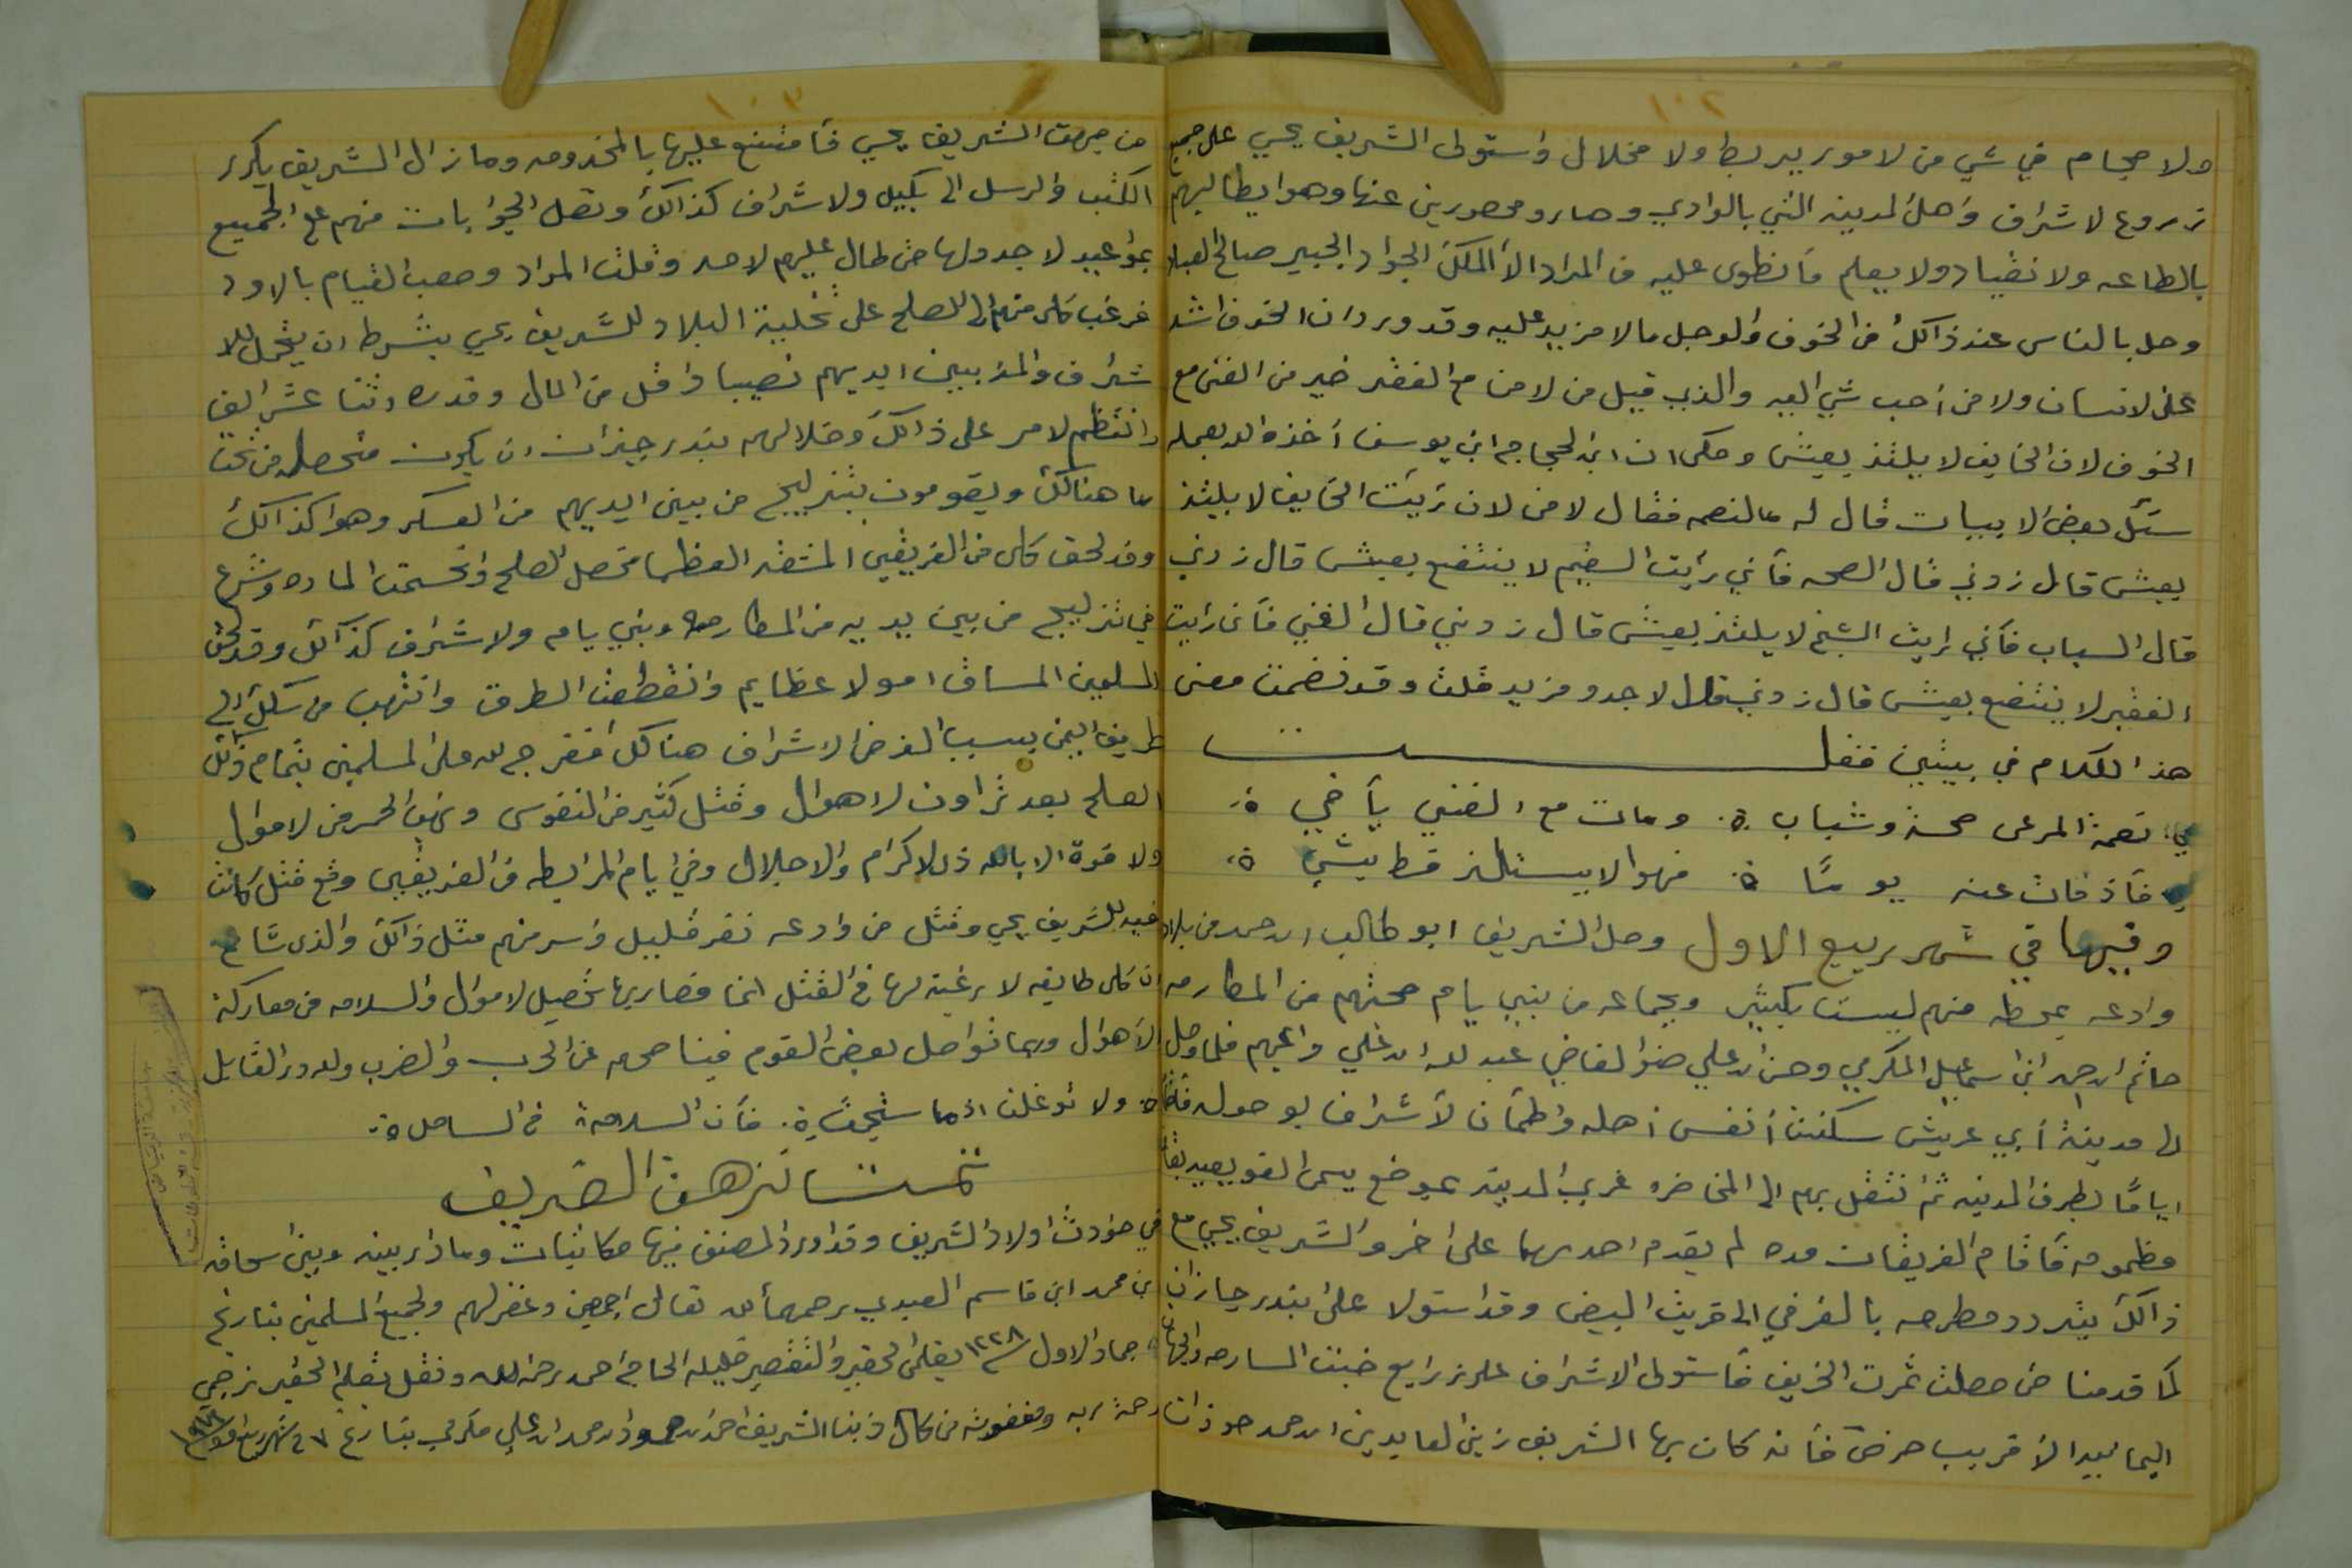 ١٠٢
ولا حجام في شي من لامور يربط ولا مخلال واستولى الشريف يحيي على جميع
زروع لاشراف واهل المدينه التي بالوادي وصارو محصورين عنها وهوا يطالبهم
بالطاعه ولا نقياد ولا يعلم مأنطوى عليه من المراد الا الملك الجواد الخبير صالح العباد
وحل بالناس عند ذالك من الخوف والوجل مالا مزيد عليه وقد ورد ان الخوف اشد
على لانسان ولا من أحب شي اليه والذي قيل من لامن مع الفقر خير من الغنى مع
الخوف لان الخايف لا يلتذ بعيش وحكى ان ابن الحجاج ابن يوسف أخذ والد بعمله
سئل بعض الا يبيات قال له مالنعمه فقال لا من لان رئيت الخايف لا يلتذ
بعيش قال زدني قال الصحه فأني رأيت السقيم لا ينتفع بعيش قال زدني
قال السباب فأني رايت الشيخ لا يلتذ بعيش قال زدني قال الغني فأن رايت
الفقير لا ينتفع بعيش قال زدني قال لا جدو مزيد قلت وقد نضمت معنى
هذا الكلام في بيتين فقلت
نعمة المرعى صحة وشباب ۞ ومات مع الغنى يأخي ۞
فأذ فات عنه يومًا ۞ فهوا لا يستلذ قط بشي ۞
وفيها في شهر ربيع الاول وصل الشريف ابو طالب ابن احمد من بلاد
وادعه بمحطه منهم ليست بكبير وبجماعه من بني يام صحبتهم من المكارمه
حاتم ابن احمد ابن اسماعيل المكرمي وحسن ابن علي صنو القاضي عبد الله ابن علي واعيهم فلما وصل
الى مدينة أبي عريش سكنت أنفس اهله واطمأن لأشراف بوصوله
اياما بطرف المدينه ثم انتقل بهم الى المخاضره غربي المدينه بموضع يسمى القويعيد بقا
مظمومه فأقام الفريقان مده لم يقدم احدهما على اخر والشريف يحيي مع
ذالك يتردد مطرحه بالفرفي الى قريت البيض وقد استولا على بندر جازان
لما قدمنا من حصلت ثمرت الخريف فأستولى الاشراف على زرايع خبت المسارحه والجهات
اليما نبيه الأقريب حرض فأنه كان بها الشريف زين العابدين ابن احمد حوذان
١٠٣
من جهت الشريف يحيي فأمتنع عليها بالمخدومه ومازال الشريف يكرر
الكتب والرسل الى بكيل ولاشراف كذالك وتصل الجوابات منهم على الجميع
بمواعيد لا جدولها من طال عليهم لامد وقلت المواد وصعب القيام بالاود
فرغب كلى منهم الى الصلح على تخلية البلاد للشريف يحي بشرط ان يتحمل للا
شراف والمذ بين ايديهم نصيبا وافل من المال وقدره اثنا عشر الف
وانتظم لامر على ذالك وخلالهم بندر جيزان ان يكون متحصله من تحت
ما هنالك ويقومون بتزليج من بين ايديهم من العسكر وهوا كذالك
وقد لحق كلى من الفريقين المشقه العظما فحصل الصلح وانحسمت الماده وشرع
في تزليج من بين يديه من المكارمه وبني يام ولاشراف كذالك وقد لحق
المسلمين المساق امولا عظايم وانقطعت الطرق وانتهب من سلك الى
طريق اليمن بسبب الفرض الاشراف هنالك ففرج الله على المسلمين بتمام ذالك
الصلح بعد تراون لاهوال وقتل كثير من النفوس ونهب الحمر من لاموال
ولا قوة الا بالله ذي لاكرام والاجلال وفي ايام المرابطه من الفريقين وقع قتل كانت
فيه للشريف يحي وقتل من وادعه نفر قليل واسر منهم مثل ذالك والذي شاع
ان كلى طايفه لا رغبة لها في القتل انما قصاريها تحصيل لاموال والسلامه من معاركة
الاهوال وربما تواصل بعض القوم فينا صحهم عن الحرب والضرب ولله در القايل
۞ ولا توغلت اذما سبحت ۞ فأن السلامة في الساحل ۞
تمت نزهة الضريف
في حوادث اولاد الشريف وقد اورد المصنف فيها مكاتبات وما دار بينه وبين اسحاق
بن محمد ابن قاسم العبدي رحمهما الله تعالى اجمعين وغفر لهم ولجميع المسلمين بتاريخ
جماد الاول سنة ١٢٢٨ بقلم الحقير والتقصير قليله الحاج احمد رحمه الله ونقل بقلم الحقير نرجي
رحمة ربه ومغفوته من كال ذبنا الشريف احمد ابن حمود ابن حمد ابن علي مكرمي بتاريخ ٢٧ شهر ربيع